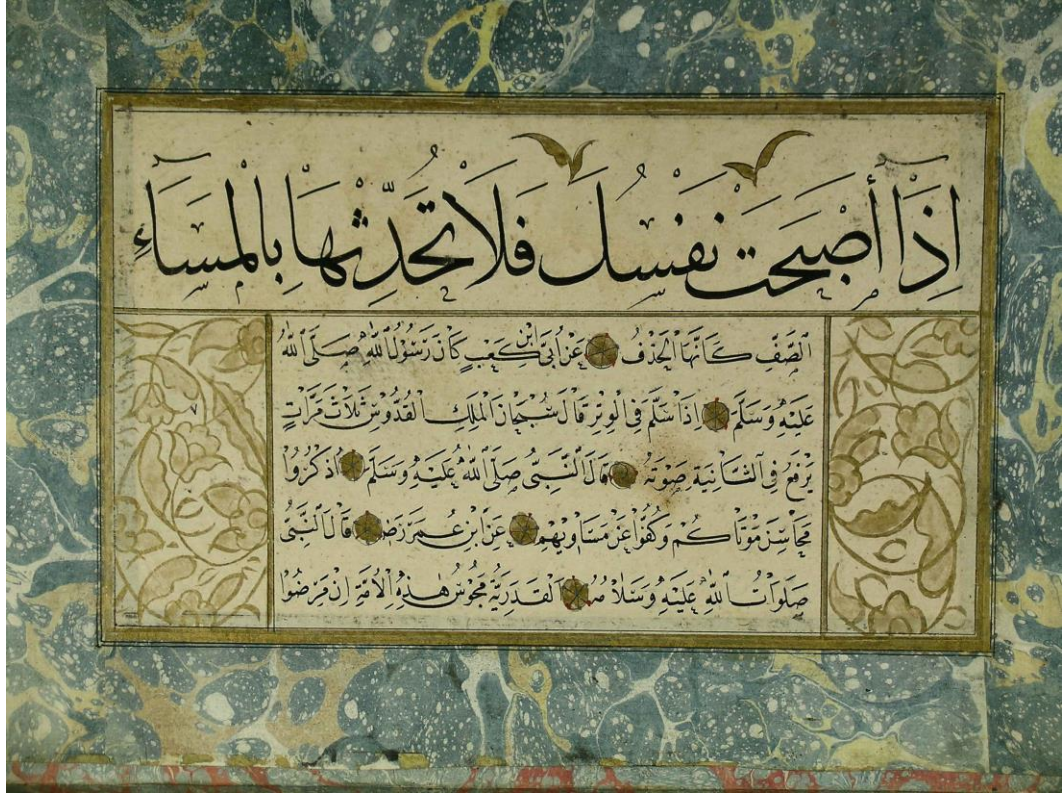 اِذَا أَصْبَحَتْ نَفْسُكَ فَلَا تُحَدِّثْهَا بِالْمَسَاءِ
الصَّفِّ كَاَنَّهَا الْحَذْفُ عَنْ اُبَيِّ ابْنِ كَعْبٍ كَانَ رَسُولُ اللّٰهِ صَلَّى اللّٰهُ
عَلَيْهِ وَسَلَّمَ اِذَا سَلَّمَ فِي الْوِتْرِ قَالَ سُبْحَانَ الْمَلِكِ الْقُدُّوسِ ثَلَاثَ مَرَّاتٍ
يَرْفَعُ فِي الثَّانِيَةِ صَوْتَهُ قَالَ النَّبِيُّ صَلَّى اللّٰهُ عَلَيْهِ وَسَلَّمَ اُذْكُرُوا
مَحَاسِنَ مَوْتَاكُمْ وَكُفُّوا عَنْ مَسَاوِيهِمْ عَنِ ابْنِ عُمَرَ رَضِ قَالَ النَّبِيُّ
صَلَوَاتُ اللّٰهِ عَلَيْهِ وَسَلَامُهُ اَلْقَدَرِيَّةُ مَجُوسُ هٰذِهِ الْاُمَّةِ اِنْ مَرِضُوا